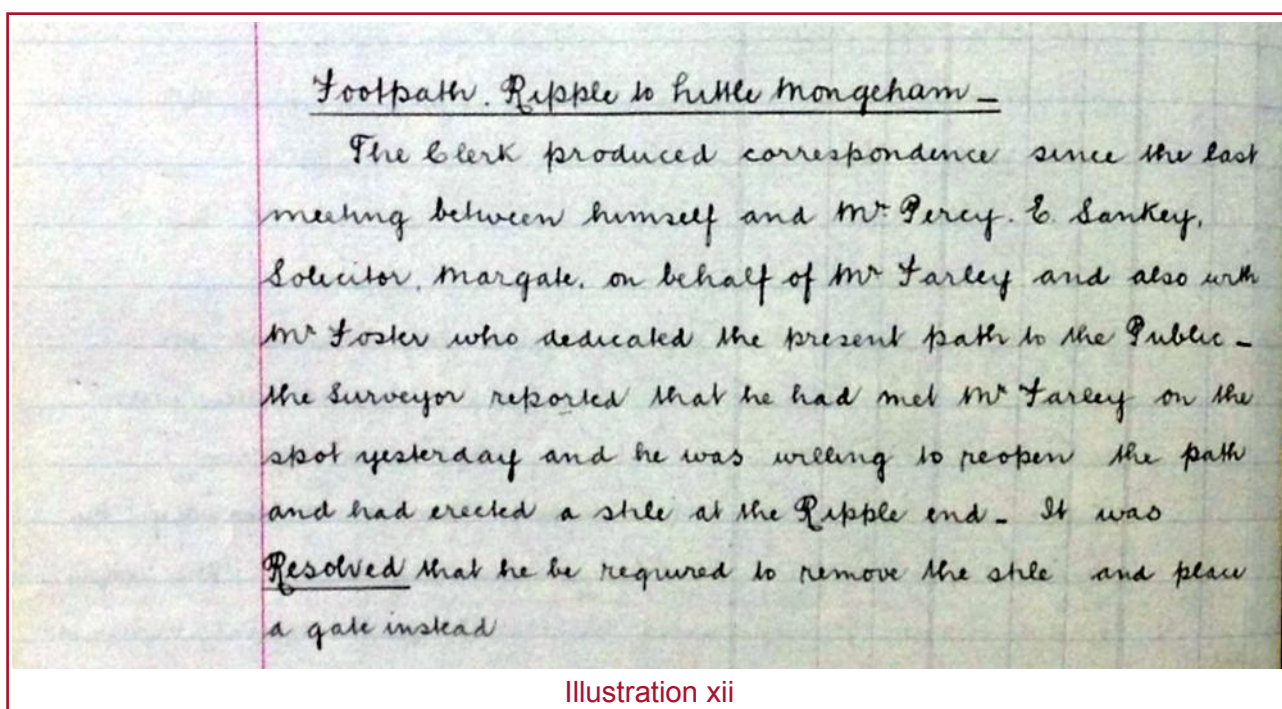 Footpath. Ripple to Little Mongeham -
The Clerk produced correspondence since the last
meeting between himself and Mr Percy. E. Sankey,
Solicitor, Margate, on behalf of Mr Farley and also with
Mr Foster who dedicated the present path to the Public -
the Surveyor reported that he had met Mr Farley on the
spot yesterday and he was willing to reopen the path
and had erected a stile at the Ripple end - It was
Resolved that he be required to remove the stile and place
a gate instead
Illustration xii